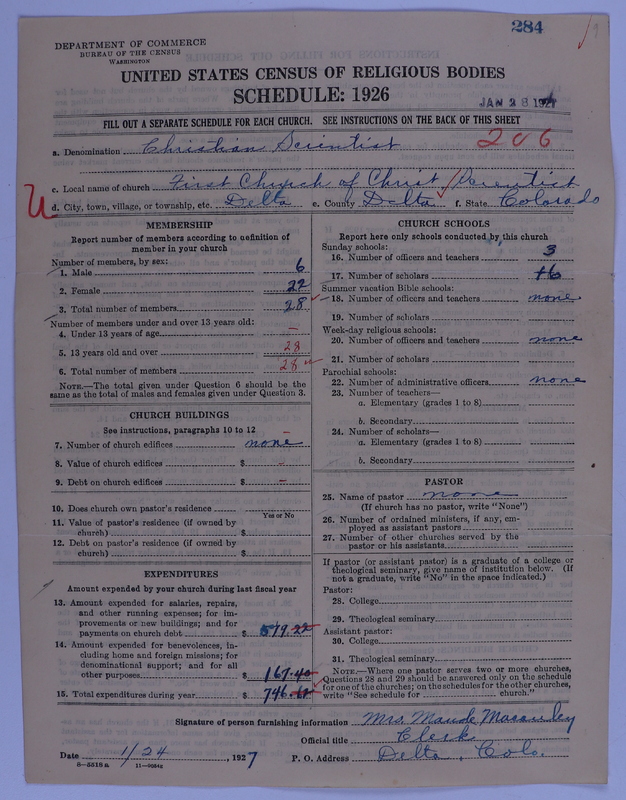 284
DEPARTMENT OF COMMERCE
BUREAU OF THE CENSUS
WASHINGTON
UNITED STATES CENSUS OF RELIGIOUS BODIES
SCHEDULE: 1926
JAN 28 1927
FILL OUT A SEPARATE SCHEDULE FOR EACH CHURCH. SEE INSTRUCTIONS ON THE BACK OF THIS SHEET
206
a. Denomination Christian Scientist
c. Local name of church First Church of Christ, Scientist
d. City, town, village, or township, etc. Delta e. County Delta f. State Colorado
MEMBERSHIP
Report number of members according to definition of
member in your church
Number of members, by sex:
1. Male 6
2. Female 22
3. Total number of members 28
Number of members under and over 13 years old:
4. Under 13 years of age –
5. 13 years old and over 28
6. Total number of members 28
NOTE.—The total given under Question 6 should be the
same as the total of males and females given under Question 3.
CHURCH BUILDINGS
See instructions, paragraphs 10 to 12
7. Number of church edifices none
8. Value of church edifices $ -
9. Debt on church edifices $ -
10. Does church own pastor's residence
Yes or No
11. Value of pastor's residence (if owned by
church) $
12. Debt on pastor's residence (if owned by
church) $
EXPENDITURES
Amount expended by your church during last fiscal year
13. Amount expended for salaries, repairs,
and other running expenses; for im-
provements or new buildings; and for
payments on church debt $ 579.22
14. Amount expended for benevolences, in-
cluding home and foreign missions; for
denominational support; and for all
other purposes $ 167.40
15. Total expenditures during year $ 746.62
CHURCH SCHOOLS
Report here only schools conducted by this church
Sunday schools:
16. Number of officers and teachers 3
17. Number of scholars 16
Summer vacation Bible schools:
18. Number of officers and teachers none
19. Number of scholars
Week-day religious schools:
20. Number of officers and teachers none
21. Number of scholars
Parochial schools:
22. Number of administrative officers none
23. Number of teachers—
a. Elementary (grades 1 to 8)
b. Secondary
24. Number of scholars—
a. Elementary (grades 1 to 8)
b. Secondary
PASTOR
25. Name of pastor none
(If church has no pastor, write "None")
26. Number of ordained ministers, if any, em-
ployed as assistant pastors
27. Number of other churches served by the
pastor or his assistants
If pastor (or assistant pastor) is a graduate of a college or
theological seminary, give name of institution below. (If
not a graduate, write "No" in the space indicated.)
Pastor:
28. College
29. Theological seminary
Assistant pastor:
30. College
31. Theological seminary
NOTE.—Where one pastor serves two or more churches,
Questions 28 and 29 should be answered only on the schedule
for one of the churches; on the schedules for the other churches,
write "See schedule for church."
Signature of person furnishing information Mrs. Maude
Official title Clerk
Date 1/24, 1927 P. O. Address Delta, Colo.
8-5518a 11-9584z